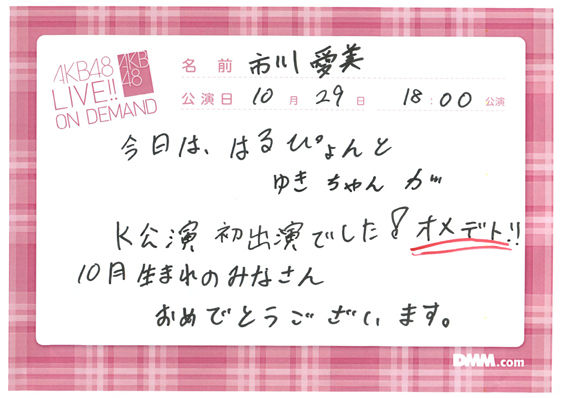 AKB48
LIVE!!
ON DEMAND
AKB
48
名 前 市川 愛美
公演日 10 月 29 日 18:00 公演
今日は、はるぴょんと
ゆきちゃんが
K公演 初出演でした! オメデト!!
10月生まれのみなさん
おめでとうございます。
DMM.com